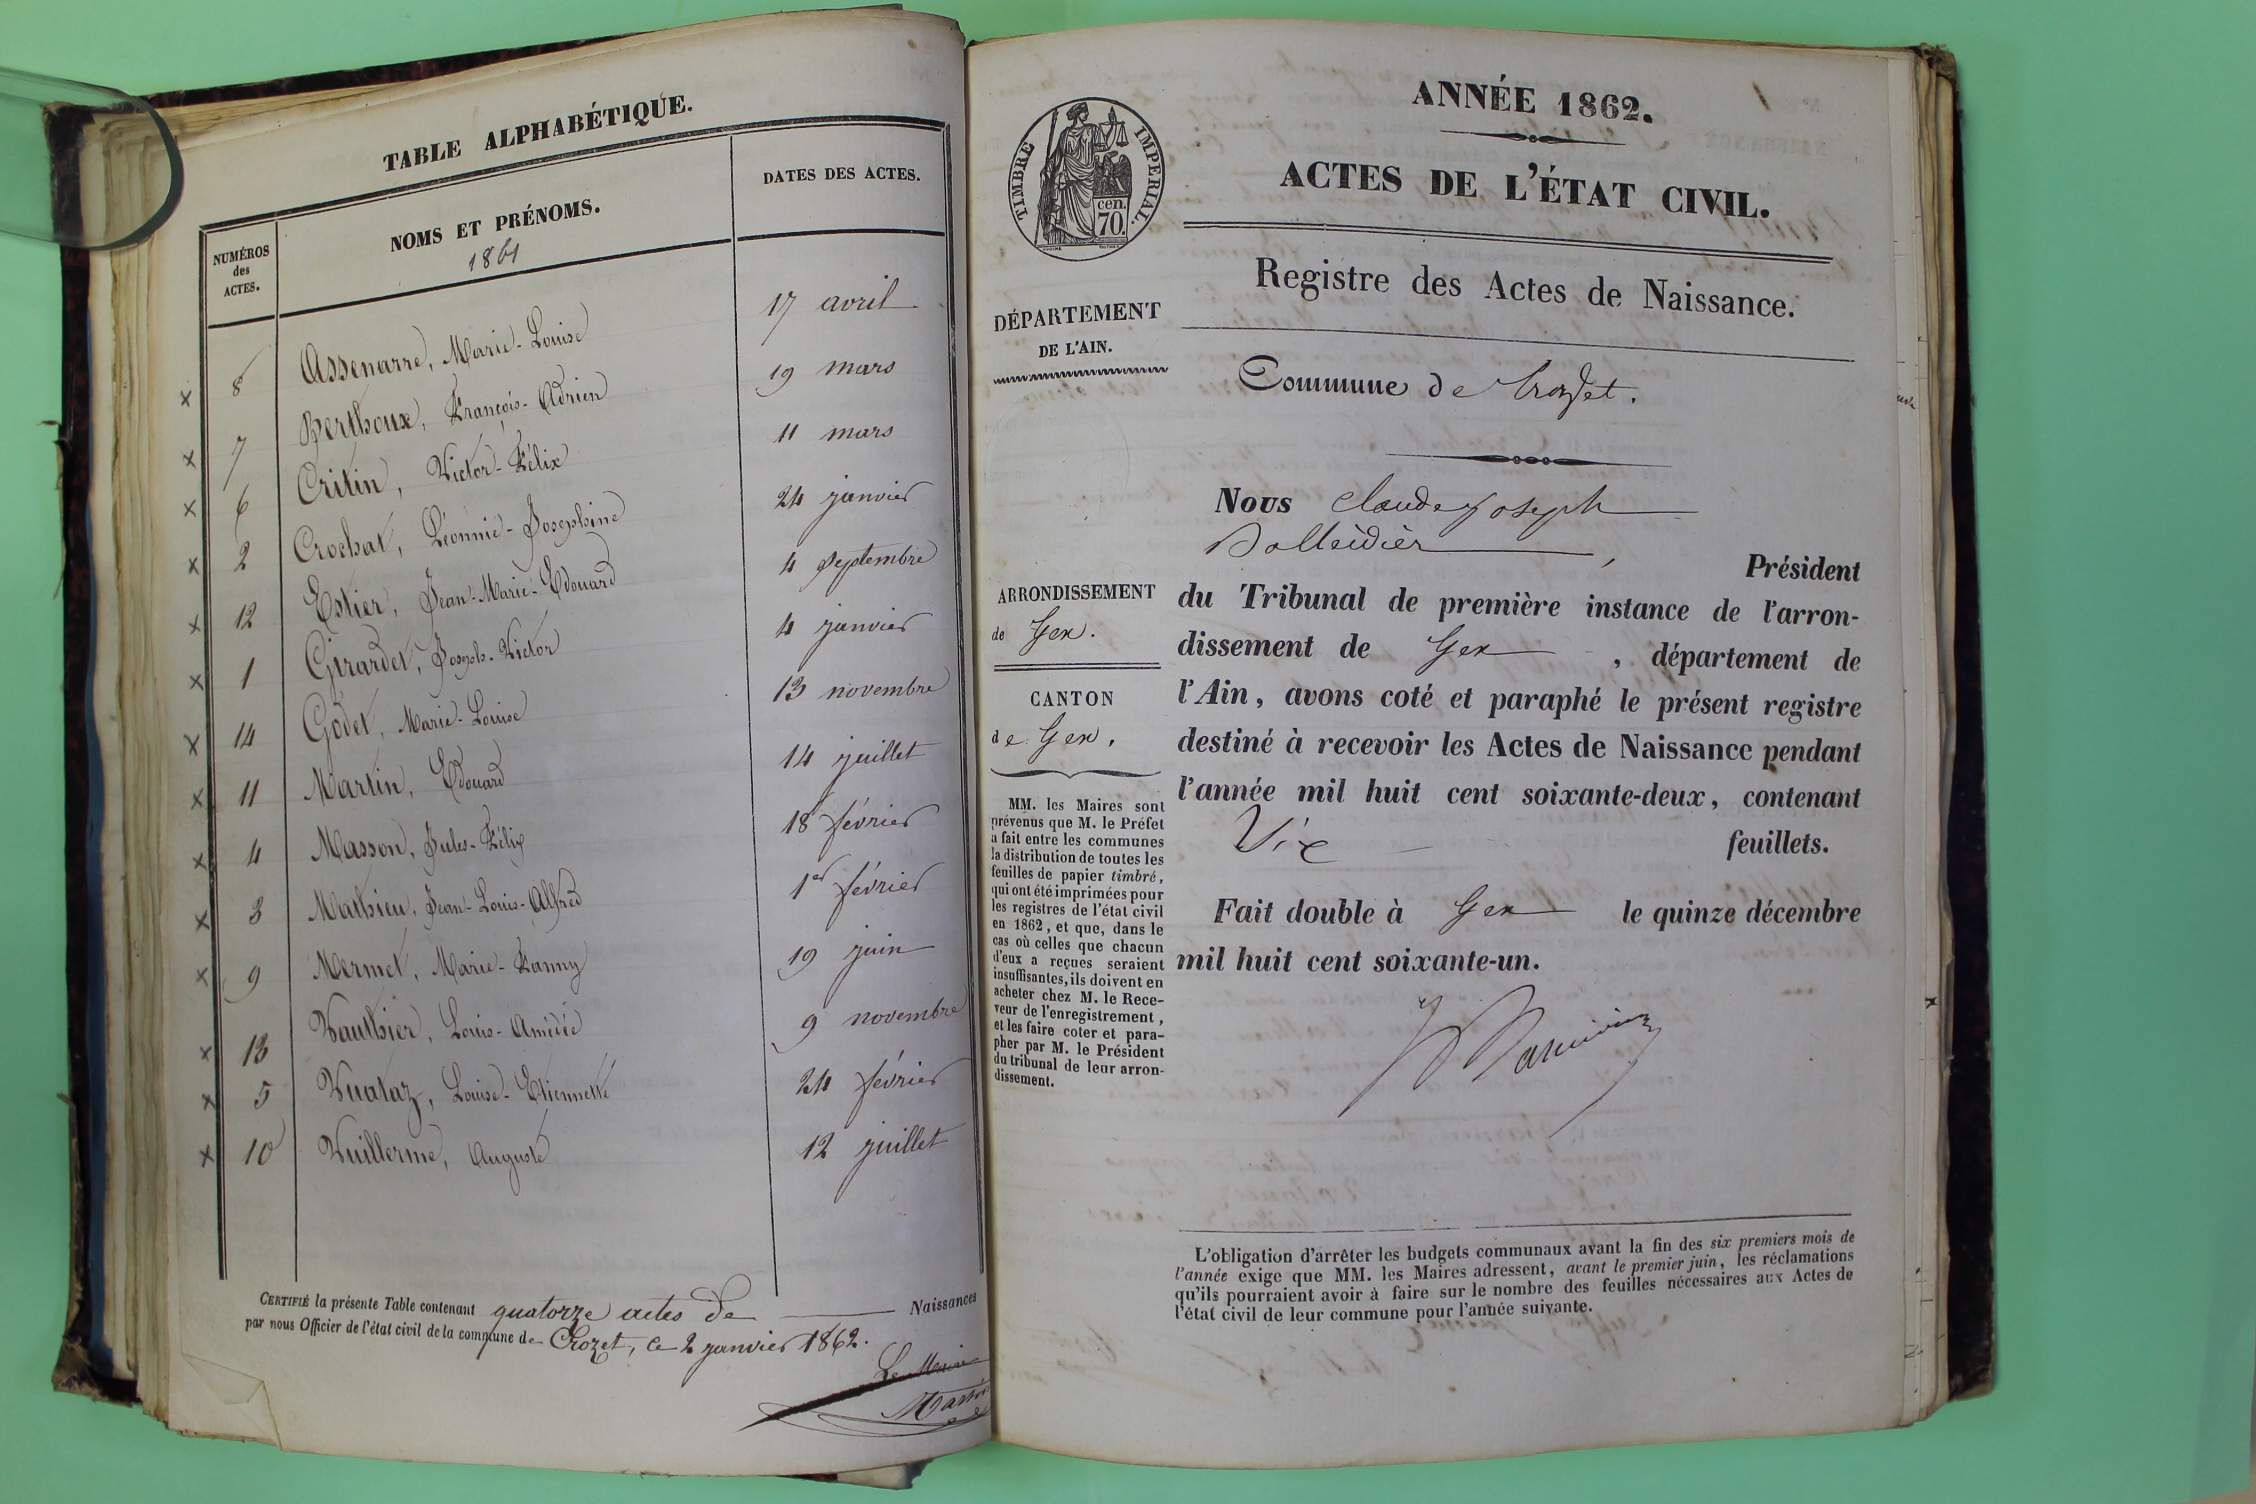 TABLE ALPHABÉTIQUE.
NUMÉROS des ACTES. NOMS ET PRÉNOMS. DATES DES ACTES.
1861
8 Assenarre, Marie-Louise 17 avril
7 Berthoux, François-Adrien 19 mars
6 Critin, Victor-Félix 11 mars
2 Crochat, Léonnie-Josephine 24 janvier
12 Estier, Jean-Marie-Edouard 4 septembre
1 Girardet, Joseph-Victor 4 janvier
14 Godet, Marie-Louise 13 novembre
11 Martin, Edouard 14 juillet
4 Masson, Jules-Félix 18 février
3 Mathieu, Jean-Louis-Alfred 1er février
9 Mermet, Marie-Fanny 19 juin
13 Vauthier, Louis-Amédée 9 novembre
5 Vuataz, Louise-Etiennette 24 février
10 Vuillerme, Auguste 12 juillet
CERTIFIÉ la présente Table contenant quatorze actes de Naissances
par nous Officier de l'état civil de la commune de Crozet, le 2 janvier 1862.
Le Maire
ANNÉE 1862.
ACTES DE L'ÉTAT CIVIL.
TIMBRE IMPERIAL.
cen.
70.
Registre des Actes de Naissance.
DÉPARTEMENT
DE L'AIN.
Commune de Crozet.
Nous Claude Joseph
Président
du Tribunal de première instance de l'arron-
dissement de Gex, département de
l'Ain, avons coté et paraphé le présent registre
destiné à recevoir les Actes de Naissance pendant
l'année mil huit cent soixante-deux, contenant
feuillets.
Fait double à Gex le quinze décembre
mil huit cent soixante-un.
ARRONDISSEMENT
de Gex.
CANTON
de Gex.
MM. les Maires sont
prévenus que M. le Préfet
a fait entre les communes
la distribution de toutes les
feuilles de papier timbré,
qui ont été imprimées pour
les registres de l'état civil
en 1862, et que, dans le
cas où celles que chacun
d'eux a reçues seraient
insuffisantes, ils doivent en
acheter chez M. le Rece-
veur de l'enregistrement,
et les faire coter et para-
pher par M. le Président
du tribunal de leur arron-
dissement.
L'obligation d'arrêter les budgets communaux avant la fin des six premiers mois de
l'année exige que MM. les Maires adressent, avant le premier juin, les réclamations
qu'ils pourraient avoir à faire sur le nombre des feuilles nécessaires aux Actes de
l'état civil de leur commune pour l'année suivante.